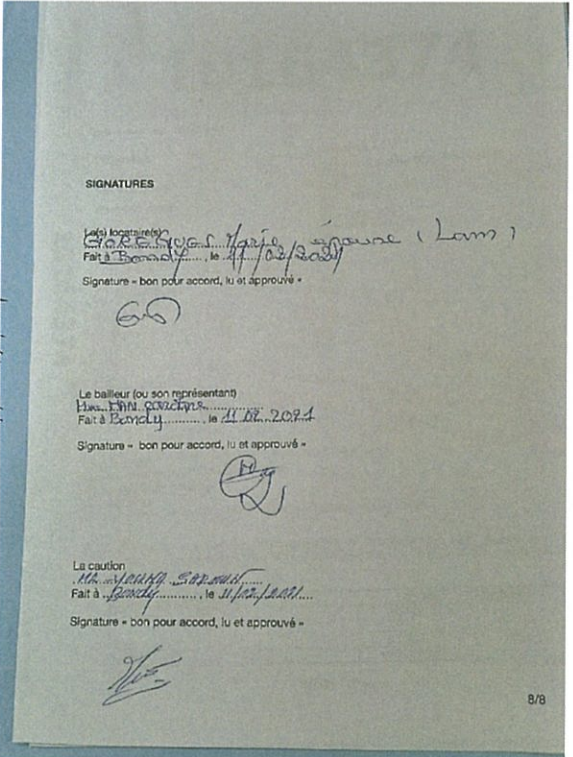 SIGNATURES
Le(s) locataire(s)
Marie épouse ( Lam )
Fait à Bondy, le 11/02/2021
Signature « bon pour accord, lu et approuvé »
Le bailleur (ou son représentant)
Mme HAN
Fait à Bondy, le 11 02 2021
Signature « bon pour accord, lu et approuvé »
La caution
Mr YOUNG
Fait à Bondy, le 11/02/2021
Signature « bon pour accord, lu et approuvé »
8/8